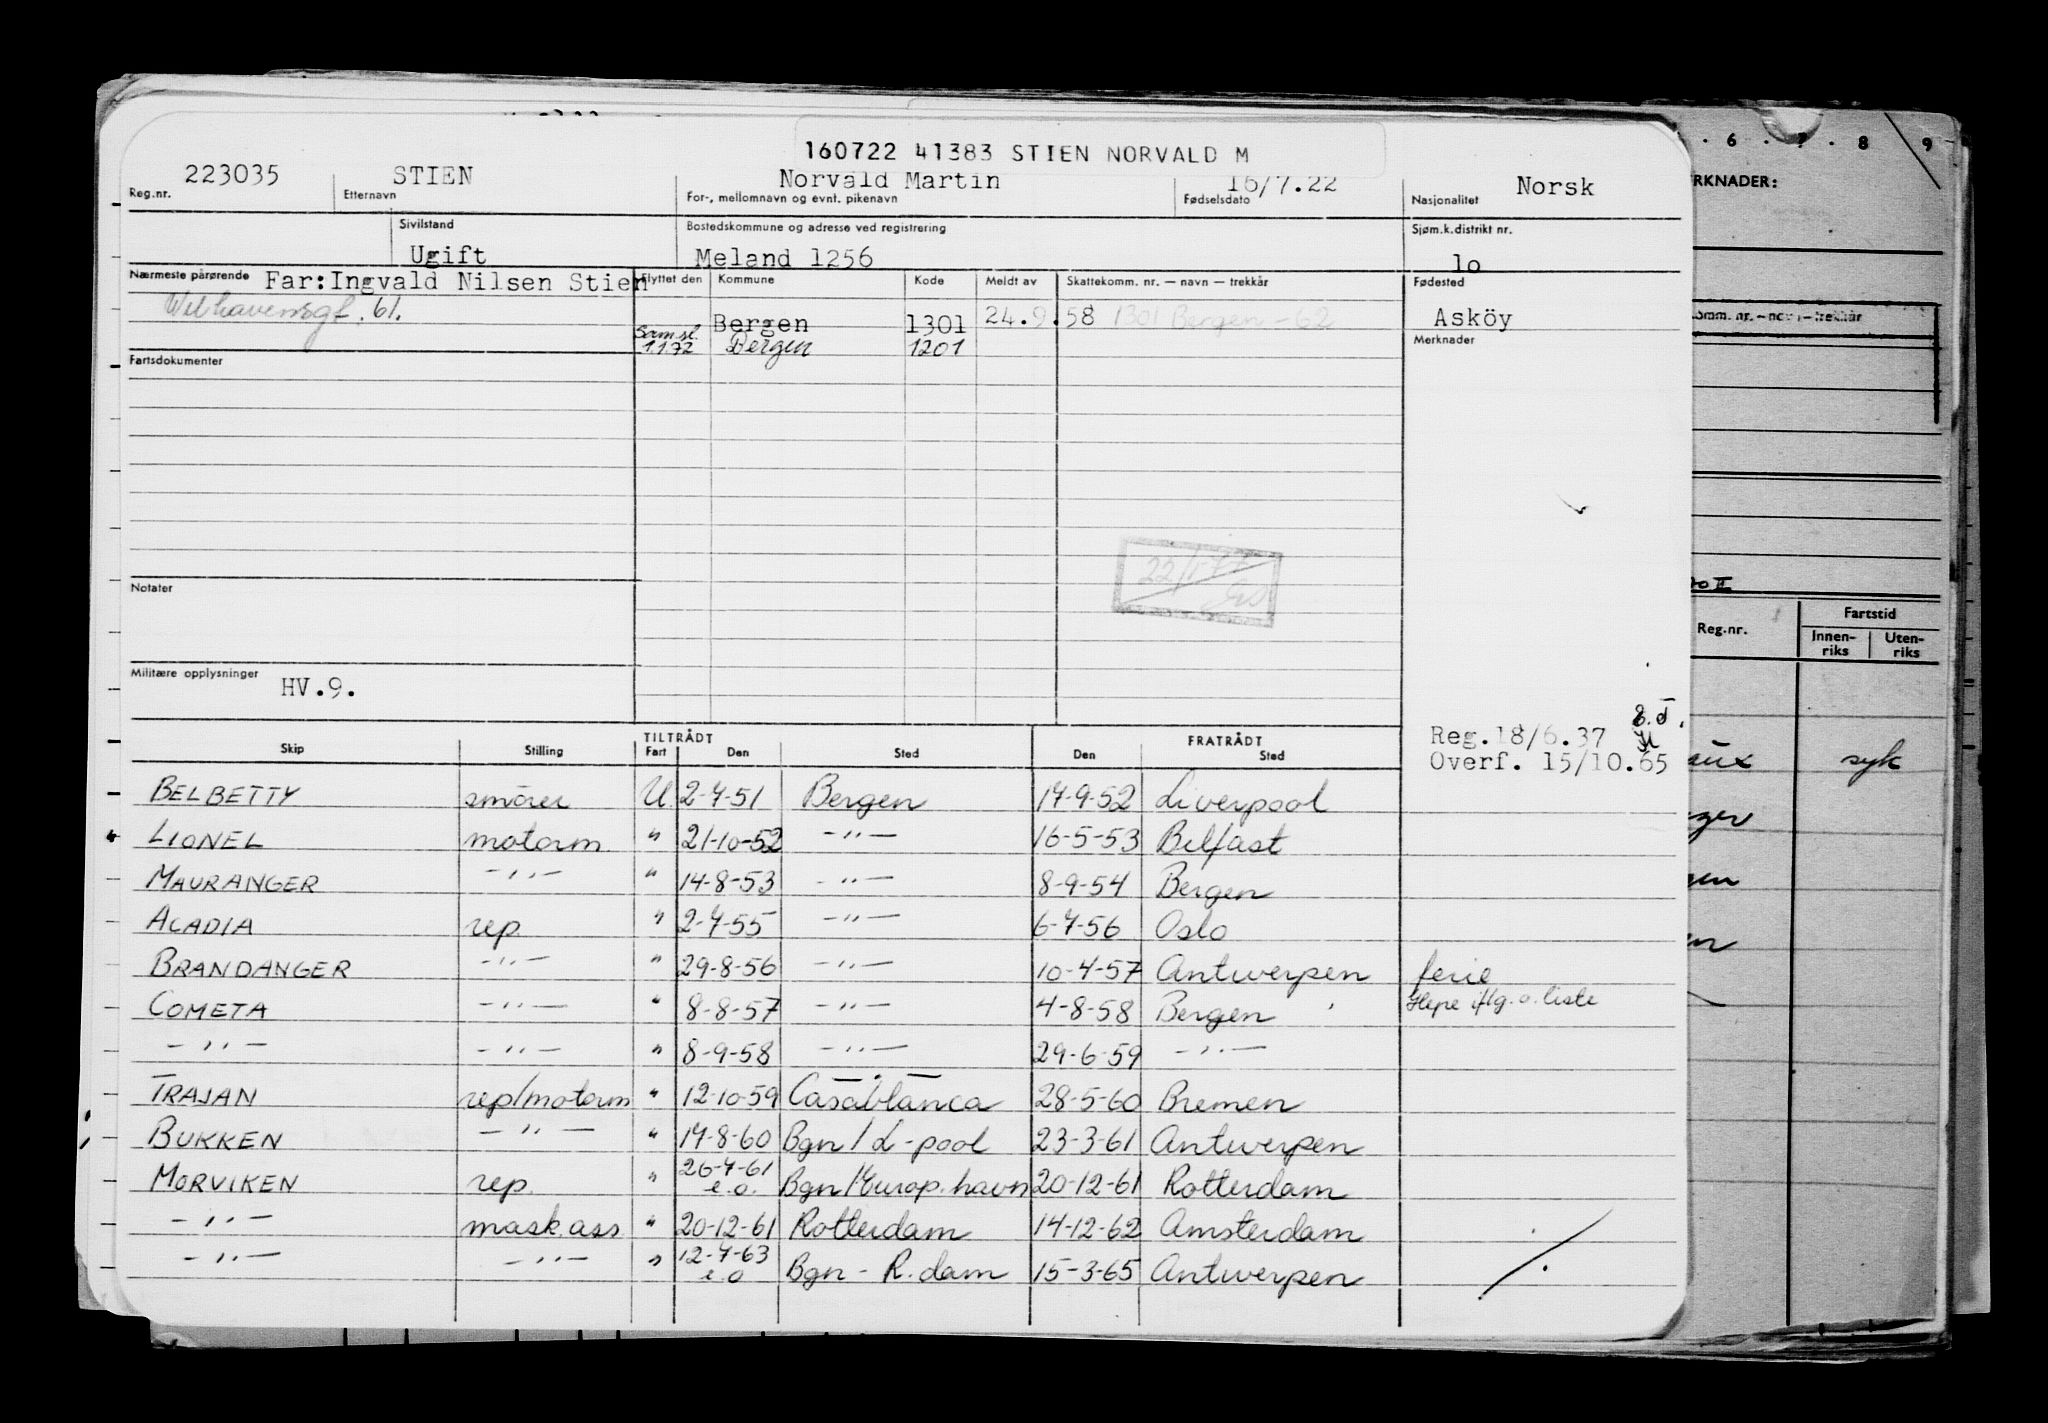 160722 41383 STIEN NORVALD M
Reg.nr. 223035 Etternavn STIEN For-, mellomnavn og evnt. pikenavn Norvald Martin Fødselsdato 16/7.22 Nasjonalitet Norsk
Sivilstand Ugift Bostedskommune og adresse ved registrering Meland 1256 Sjøm.k.distrikt nr. lo
Nærmeste pårørende Far:Ingvald Nilsen Stien Flyttet den Kommune Kode Meldt av Skattekomm. nr. — navn — trekkår Fødested
61. Bergen 1301 24.9.58 1301 Bergen -62 Asköy
1.1.72 Bergen 1201 Merknader
Fartsdokumenter
Notater
Militære opplysninger HV.9.
Reg.18/6.37
Overf. 15/10.65
TILTRÅDT FRATRÅDT
Skip Stilling Fart Den Sted Den Sted
BELBETTY smörer U 2-7-51 Bergen 17-9-52 Liverpool
LIONEL motorm " 21-10-52 -"- 16-5-53 Belfast
MAURANGER -"- " 14-8-53 -"- 8-9-54 Bergen
ACADIA rep. " 2-7-55 -"- 6-7-56 Oslo
BRANDANGER -"- " 29-8-56 -"- 10-4-57 Antwerpen ferie
COMETA -"- " 8-8-57 -"- 4-8-58 Bergen iflg. o. liste
-"- -"- " 8-9-58 -"- 29-6-59 -"-
TRAJAN rep/motorm " 12-10-59 Casablanca 28-5-60 Bremen
BUKKEN -"- " 17-8-60 Bgn / L-pool 23-3-61 Antwerpen
MORVIKEN rep. " 26-7-61 e.o. Bgn/Europ. havn 20-12-61 Rotterdam
-"- mask.ass " 20-12-61 Rotterdam 14-12-62 Amsterdam
-"- -"- " 12-7-63 e.o Bgn - R.dam 15-3-65 Antwerpen
6 . 7 . 8 9
RKNADER:
omm. nr. — navn — trekkår
Reg.nr. Fartstid
Innen-riks Uten-riks
syk